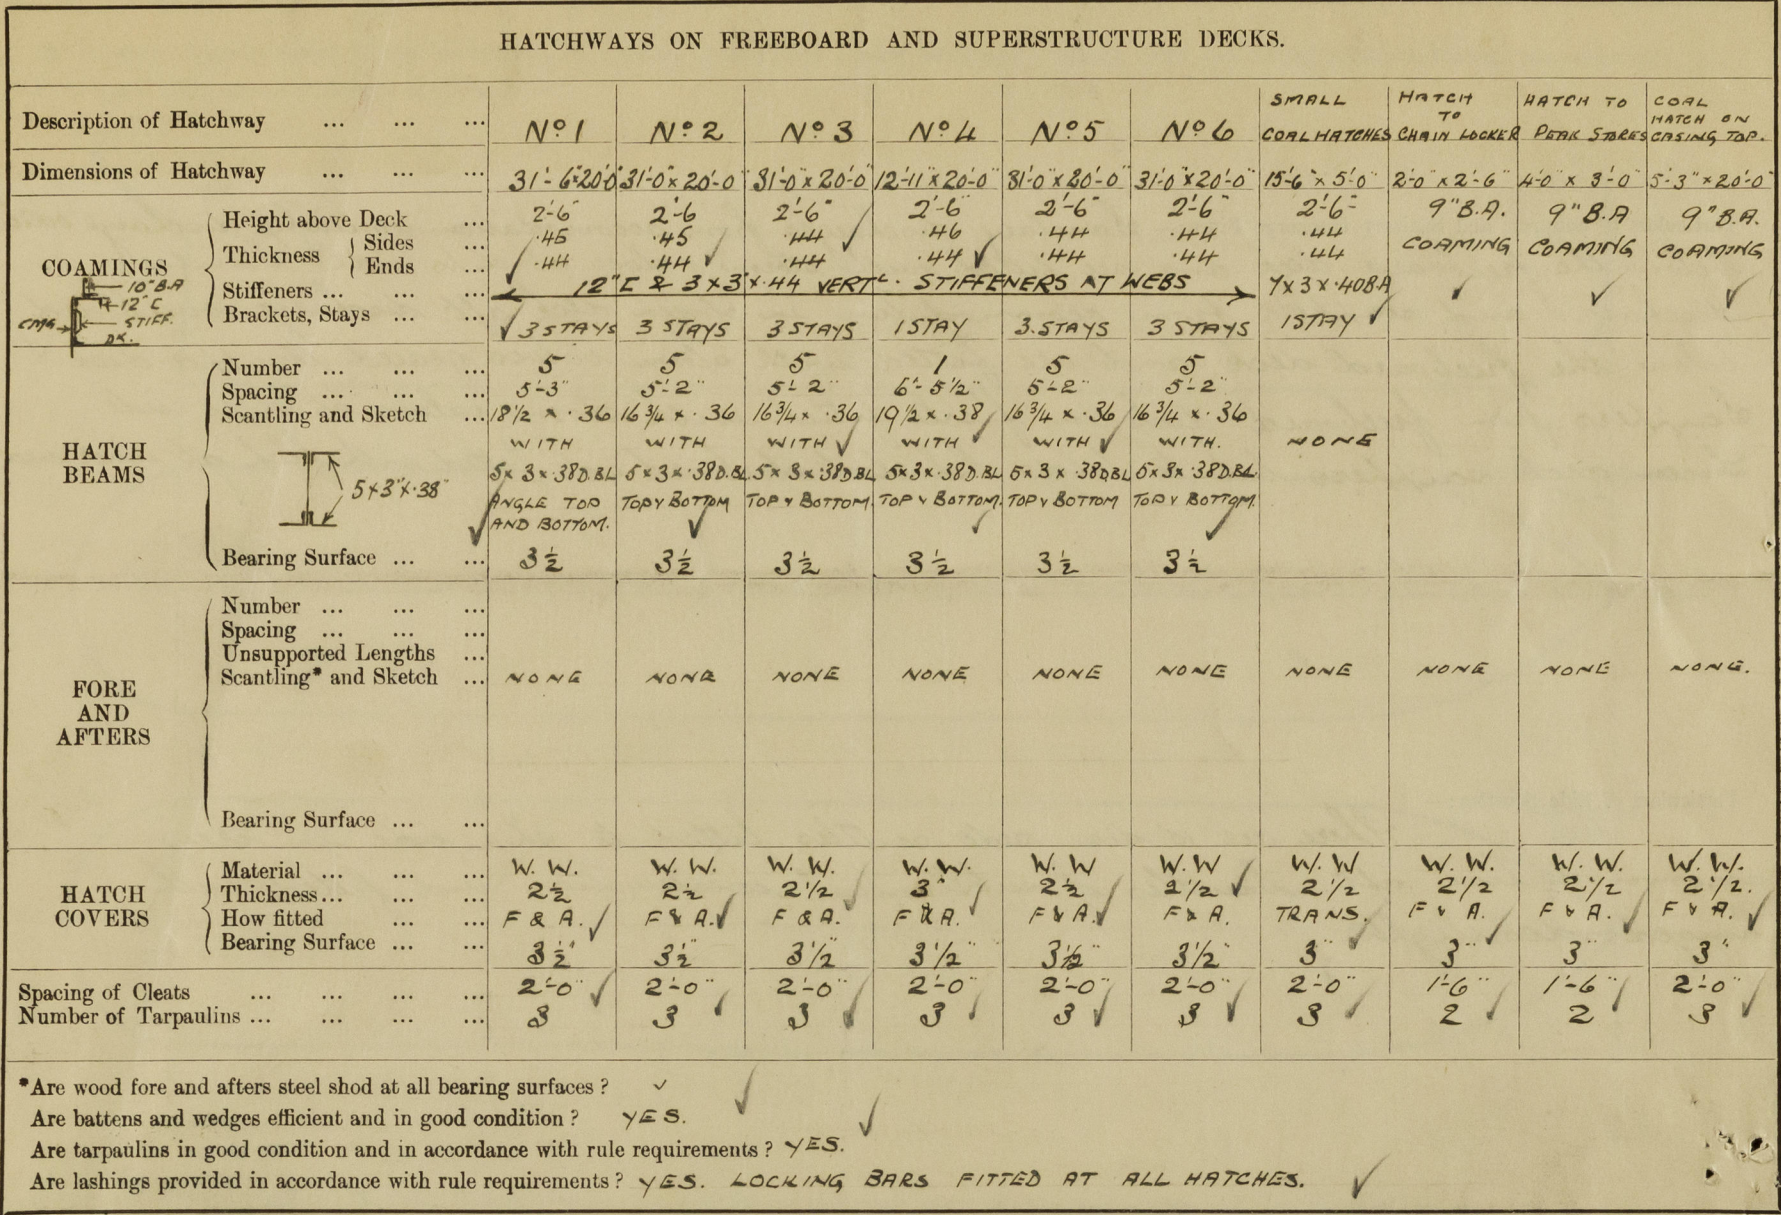 HATCHWAYS ON FREEBOARD AND SUPERSTRUCTURE DECKS.
Description of Hatchway ... ... ... Nº 1 Nº 2 Nº 3 Nº 4 Nº 5 Nº 6 SMALL COAL HATCHES HATCH TO CHAIN LOCKER HATCH TO PEAK STORES COAL HATCH ON CASING TOP.
Dimensions of Hatchway ... ... ... 31'-6"x20'-0" 31'-0"x20'-0" 31'-0"x20'-0" 12'-11"x20'-0" 31'-0"x20'-0" 31'-0"x20'-0" 15'-6"x5'-0" 2'-0"x2'-6" 4'-0"x3'-0" 5'-3"x20'-0"
COAMINGS
Height above Deck ... 2'-6" 2'-6 2'-6" 2'-6" 2'-6" 2'-6" 2'-6" 9" B.A. 9" B.A 9" B.A.
Thickness Sides ... .45 .45 .44 .46 .44 .44 .44 COAMING COAMING COAMING
Ends ... .44 .44 .44 .44 .44 .44 .44
Stiffeners ... ... ... 12" [ & 3 x 3" x .44 VERTL. STIFFENERS AT WEBS 7 x 3 x .40 BA ✓ ✓ ✓
Brackets, Stays ... ... ✓ 3 STAYS 3 STAYS 3 STAYS 1 STAY 3. STAYS 3 STAYS 1 STAY ✓
10" B.A
12" C
CMG STIFF.
DK.
HATCH BEAMS
Number ... ... ... 5 5 5 1 5 5
Spacing ... ... ... 5'-3" 5'-2" 5'-2" 6'-5½" 5'-2" 5'-2"
Scantling and Sketch ... 18½ x .36 16¾ x .36 16¾ x .36 19½ x .38 16¾ x .36 16¾ x .36
WITH WITH WITH ✓ WITH ✓ WITH ✓ WITH. NONE
5 x 3 x .38 D.BL 5 x 3 x .38 D.BL 5 x 3 x .38 D.BL 5 x 3 x .38 D.BL 5 x 3 x .38 D.BL 5 x 3 x .38 D.BL
5 x 3" x .38"
ANGLE TOP TOP & BOTTOM TOP & BOTTOM TOP & BOTTOM. TOP & BOTTOM TOP & BOTTOM.
AND BOTTOM.
Bearing Surface ... ... 3½ 3½ 3½ 3½ 3½ 3½
FORE AND AFTERS
Number ... ... ...
Spacing ... ... ...
Unsupported Lengths ...
Scantling* and Sketch ... NONE NONE NONE NONE NONE NONE NONE NONE NONE NONE.
Bearing Surface ... ...
HATCH COVERS
Material ... ... ... W. W. W. W. W. W. W. W. W. W W. W W. W W. W. W. W. W. W.
Thickness... ... ... 2½ 2½ 2½ 3" 2½ 2½ 2½ 2½ 2½ 2½.
How fitted ... ... F & A. F & A. F & A. F & A. F & A. F & A. TRANS. F & A. F & A. F & A.
Bearing Surface ... ... 3½" 3½" 3½ 3½" 3½" 3½" 3" 3" 3" 3"
Spacing of Cleats ... ... ... ... 2'-0" 2'-0" 2'-0" 2'-0" 2'-0" 2'-0" 2'-0" 1'-6" 1'-6" 2'-0"
Number of Tarpaulins ... ... ... ... 3 3 3 3 3 3 3 2 2 3
*Are wood fore and afters steel shod at all bearing surfaces? ✓
Are battens and wedges efficient and in good condition? YES.
Are tarpaulins in good condition and in accordance with rule requirements? YES.
Are lashings provided in accordance with rule requirements? YES. LOCKING BARS FITTED AT ALL HATCHES.